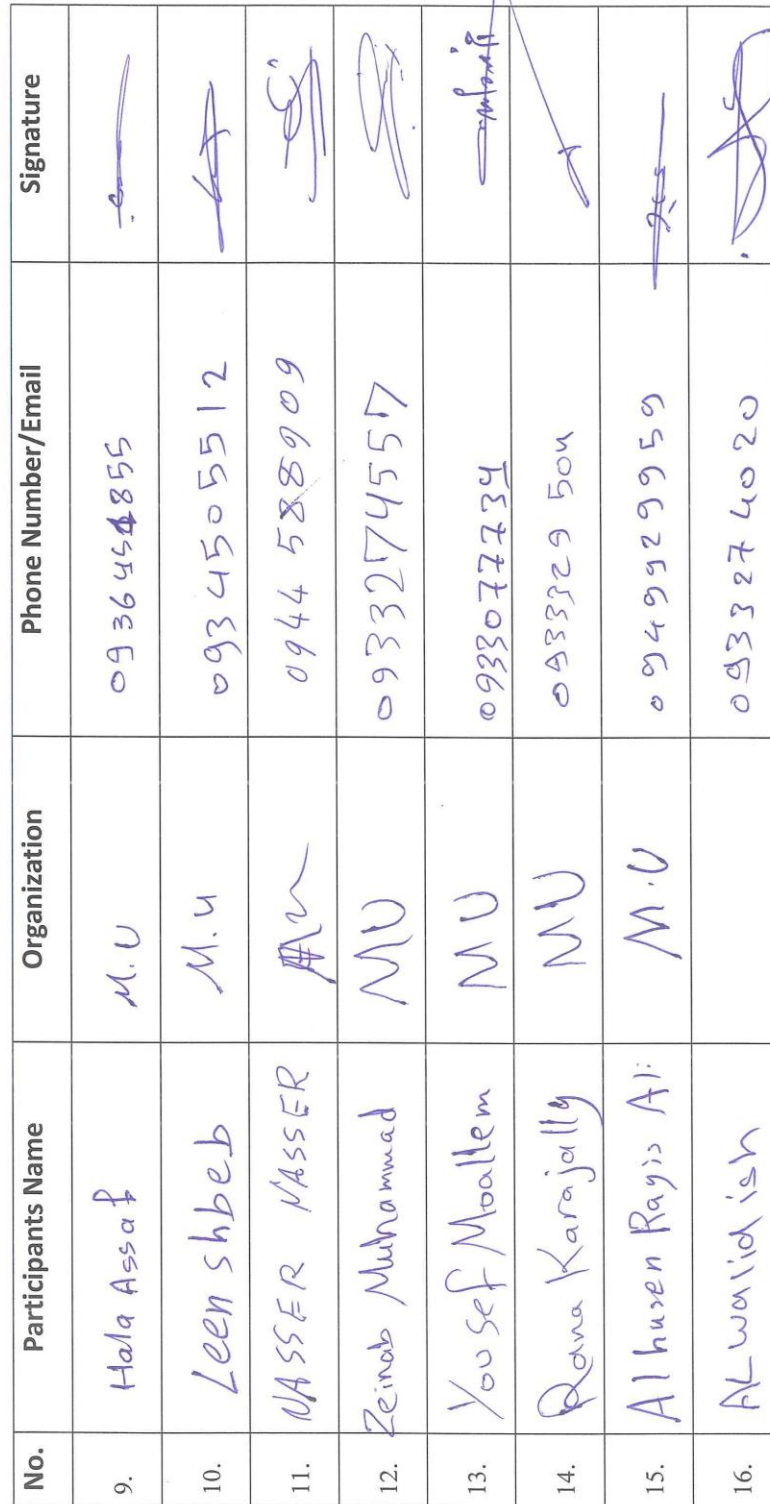 No. Participants Name Organization Phone Number/Email Signature
9. Hala Assaf M.U
10. Leen shbeb M.U 0934505512
11. NASSER NASSER 0944588909
12. Zeinab Muhammad MU 0933274557
13. Yousef Moallem MU 0933077734
14. Rana Karajally MU
15. Alhusen Rayis Ali M.U 0949929959
16. AL walid ish 0933274020